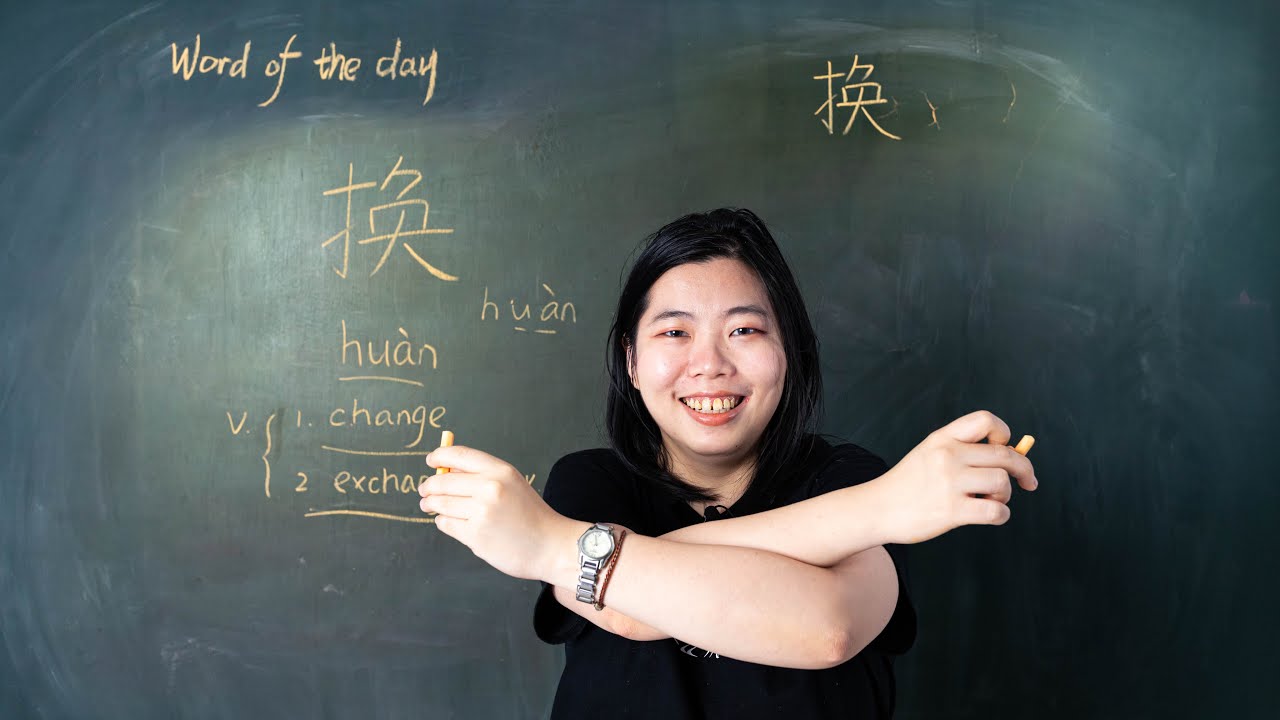 Word of the day
换
换
huàn
huàn
v.
1. change
2